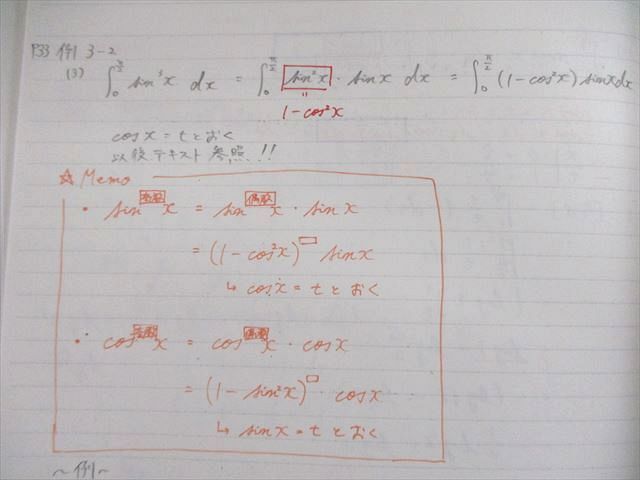 P33 例 3-2
(3) ∫₀^{π/2} sin³x dx = ∫₀^{π/2} sin²x · sinx dx = ∫₀^{π/2} (1-cos²x) sinx dx
"
1-cos²x
cosx = t とおく
以後テキスト参照!!
☆ Memo
• sin^{奇数}x = sin^{偶数}x · sinx
= (1-cos²x)^□ sinx
↳ cosx = t とおく
• cos^{奇数}x = cos^{偶数}x · cosx
= (1-sin²x)^□ · cosx
↳ sinx = t とおく
~例~